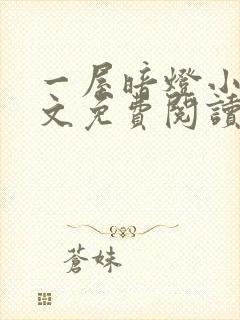 一屋暗燈小
文免費閱讀
蒼妹